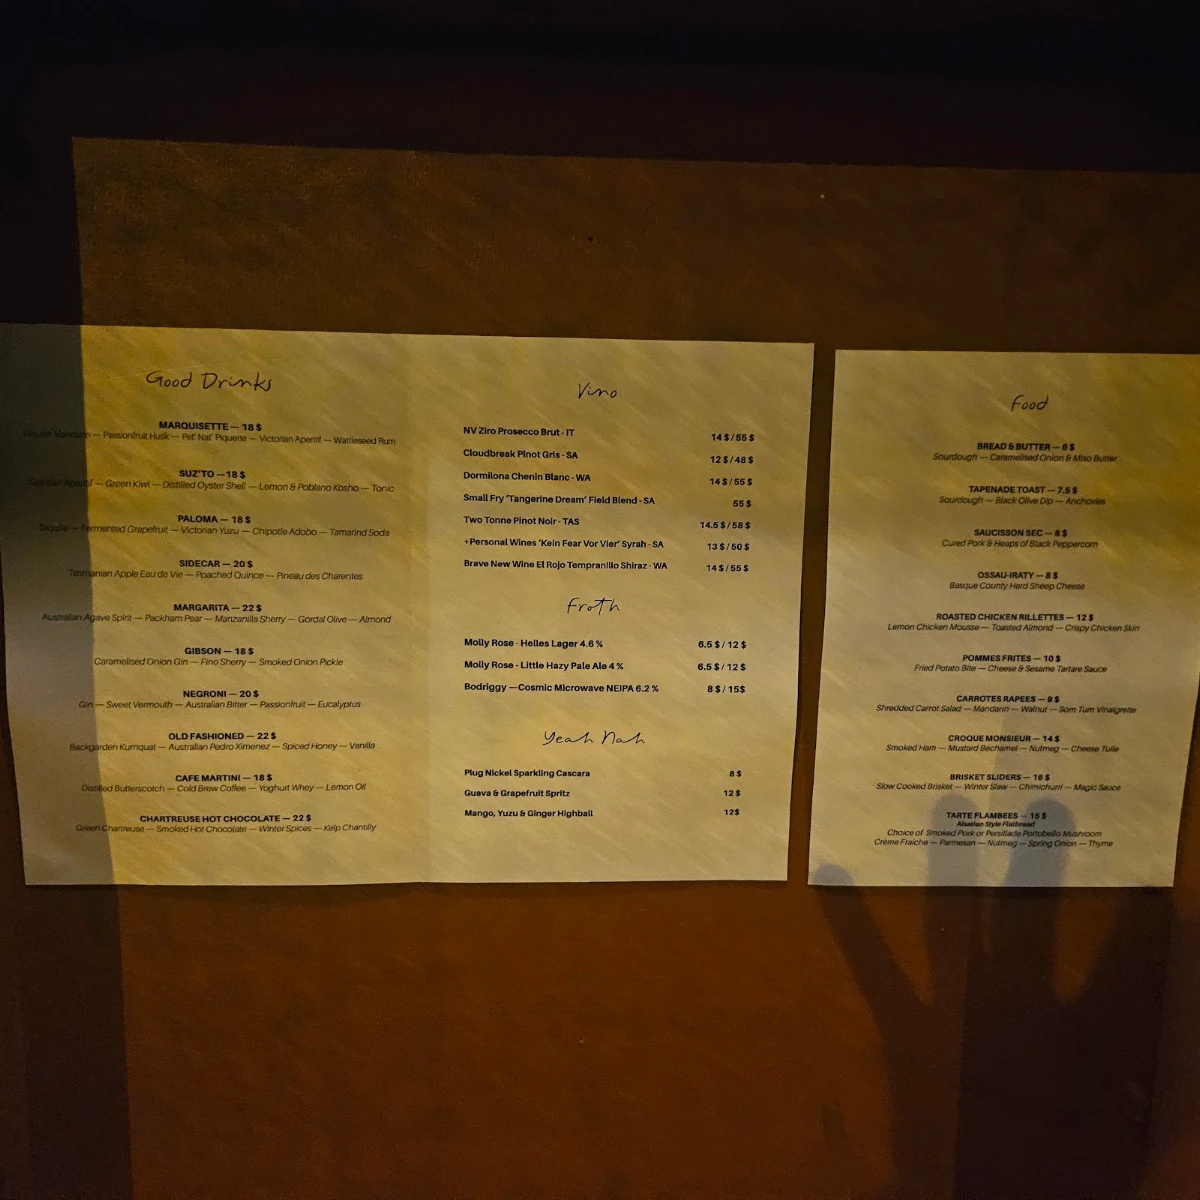 Good Drinks
MARQUISETTE — 18 $
House Mandarin — Passionfruit Husk — Pet' Nat' Piquette — Victorian Aperitif — Wattleseed Rum
SUZ'TO — 18 $
Aperitif — Green Kiwi — Distilled Oyster Shell — Lemon & Poblano Kosho — Tonic
PALOMA — 18 $
Tequila — Fermented Grapefruit — Victorian Yuzu — Chipotle Adobo — Tamarind Soda
SIDECAR — 20 $
Tasmanian Apple Eau de Vie — Poached Quince — Pineau des Charentes
MARGARITA — 22 $
Australian Agave Spirit — Packham Pear — Manzanilla Sherry — Gordal Olive — Almond
GIBSON — 18 $
Caramelised Onion Gin — Fino Sherry — Smoked Onion Pickle
NEGRONI — 20 $
Gin — Sweet Vermouth — Australian Bitter — Passionfruit — Eucalyptus
OLD FASHIONED — 22 $
Backgarden Kumquat — Australian Pedro Ximenez — Spiced Honey — Vanilla
CAFE MARTINI — 18 $
Distilled Butterscotch — Cold Brew Coffee — Yoghurt Whey — Lemon Oil
CHARTREUSE HOT CHOCOLATE — 22 $
Green Chartreuse — Smoked Hot Chocolate — Winter Spices — Kelp Chantilly
Vino
NV Ziro Prosecco Brut - IT 14 $ / 55 $
Cloudbreak Pinot Gris - SA 12 $ / 48 $
Dormilona Chenin Blanc - WA 14 $ / 55 $
Small Fry 'Tangerine Dream' Field Blend - SA 55 $
Two Tonne Pinot Noir - TAS 14.5 $ / 58 $
+Personal Wines 'Kein Fear Vor Vier' Syrah - SA 13 $ / 50 $
Brave New Wine El Rojo Tempranillo Shiraz - WA 14 $ / 55 $
Froth
Molly Rose - Helles Lager 4.6 % 6.5 $ / 12 $
Molly Rose - Little Hazy Pale Ale 4 % 6.5 $ / 12 $
Bodriggy — Cosmic Microwave NEIPA 6.2 % 8 $ / 15$
Yeah Nah
Plug Nickel Sparkling Cascara 8 $
Guava & Grapefruit Spritz 12 $
Mango, Yuzu & Ginger Highball 12$
Food
BREAD & BUTTER — 6 $
Sourdough — Caramelised Onion & Miso Butter
TAPENADE TOAST — 7.5 $
Sourdough — Black Olive Dip — Anchovies
SAUCISSON SEC — 8 $
Cured Pork & Heaps of Black Peppercorn
OSSAU-IRATY — 8 $
Basque County Hard Sheep Cheese
ROASTED CHICKEN RILLETTES — 12 $
Lemon Chicken Mousse — Toasted Almond — Crispy Chicken Skin
POMMES FRITES — 10 $
Fried Potato Bite — Cheese & Sesame Tartare Sauce
CARROTES RAPEES — 9 $
Shredded Carrot Salad — Mandarin — Walnut — Som Tum Vinaigrette
CROQUE MONSIEUR — 14 $
Smoked Ham — Mustard Béchamel — Nutmeg — Cheese Tuile
BRISKET SLIDERS — 16 $
Slow Cooked Brisket — Winter Slaw — Chimichurri — Magic Sauce
TARTE FLAMBEES — 15 $
Alsatian Style Flatbread
Choice of Smoked Pork or Persillade Portobello Mushroom
Crème Fraiche — Parmesan — Nutmeg — Spring Onion — Thyme